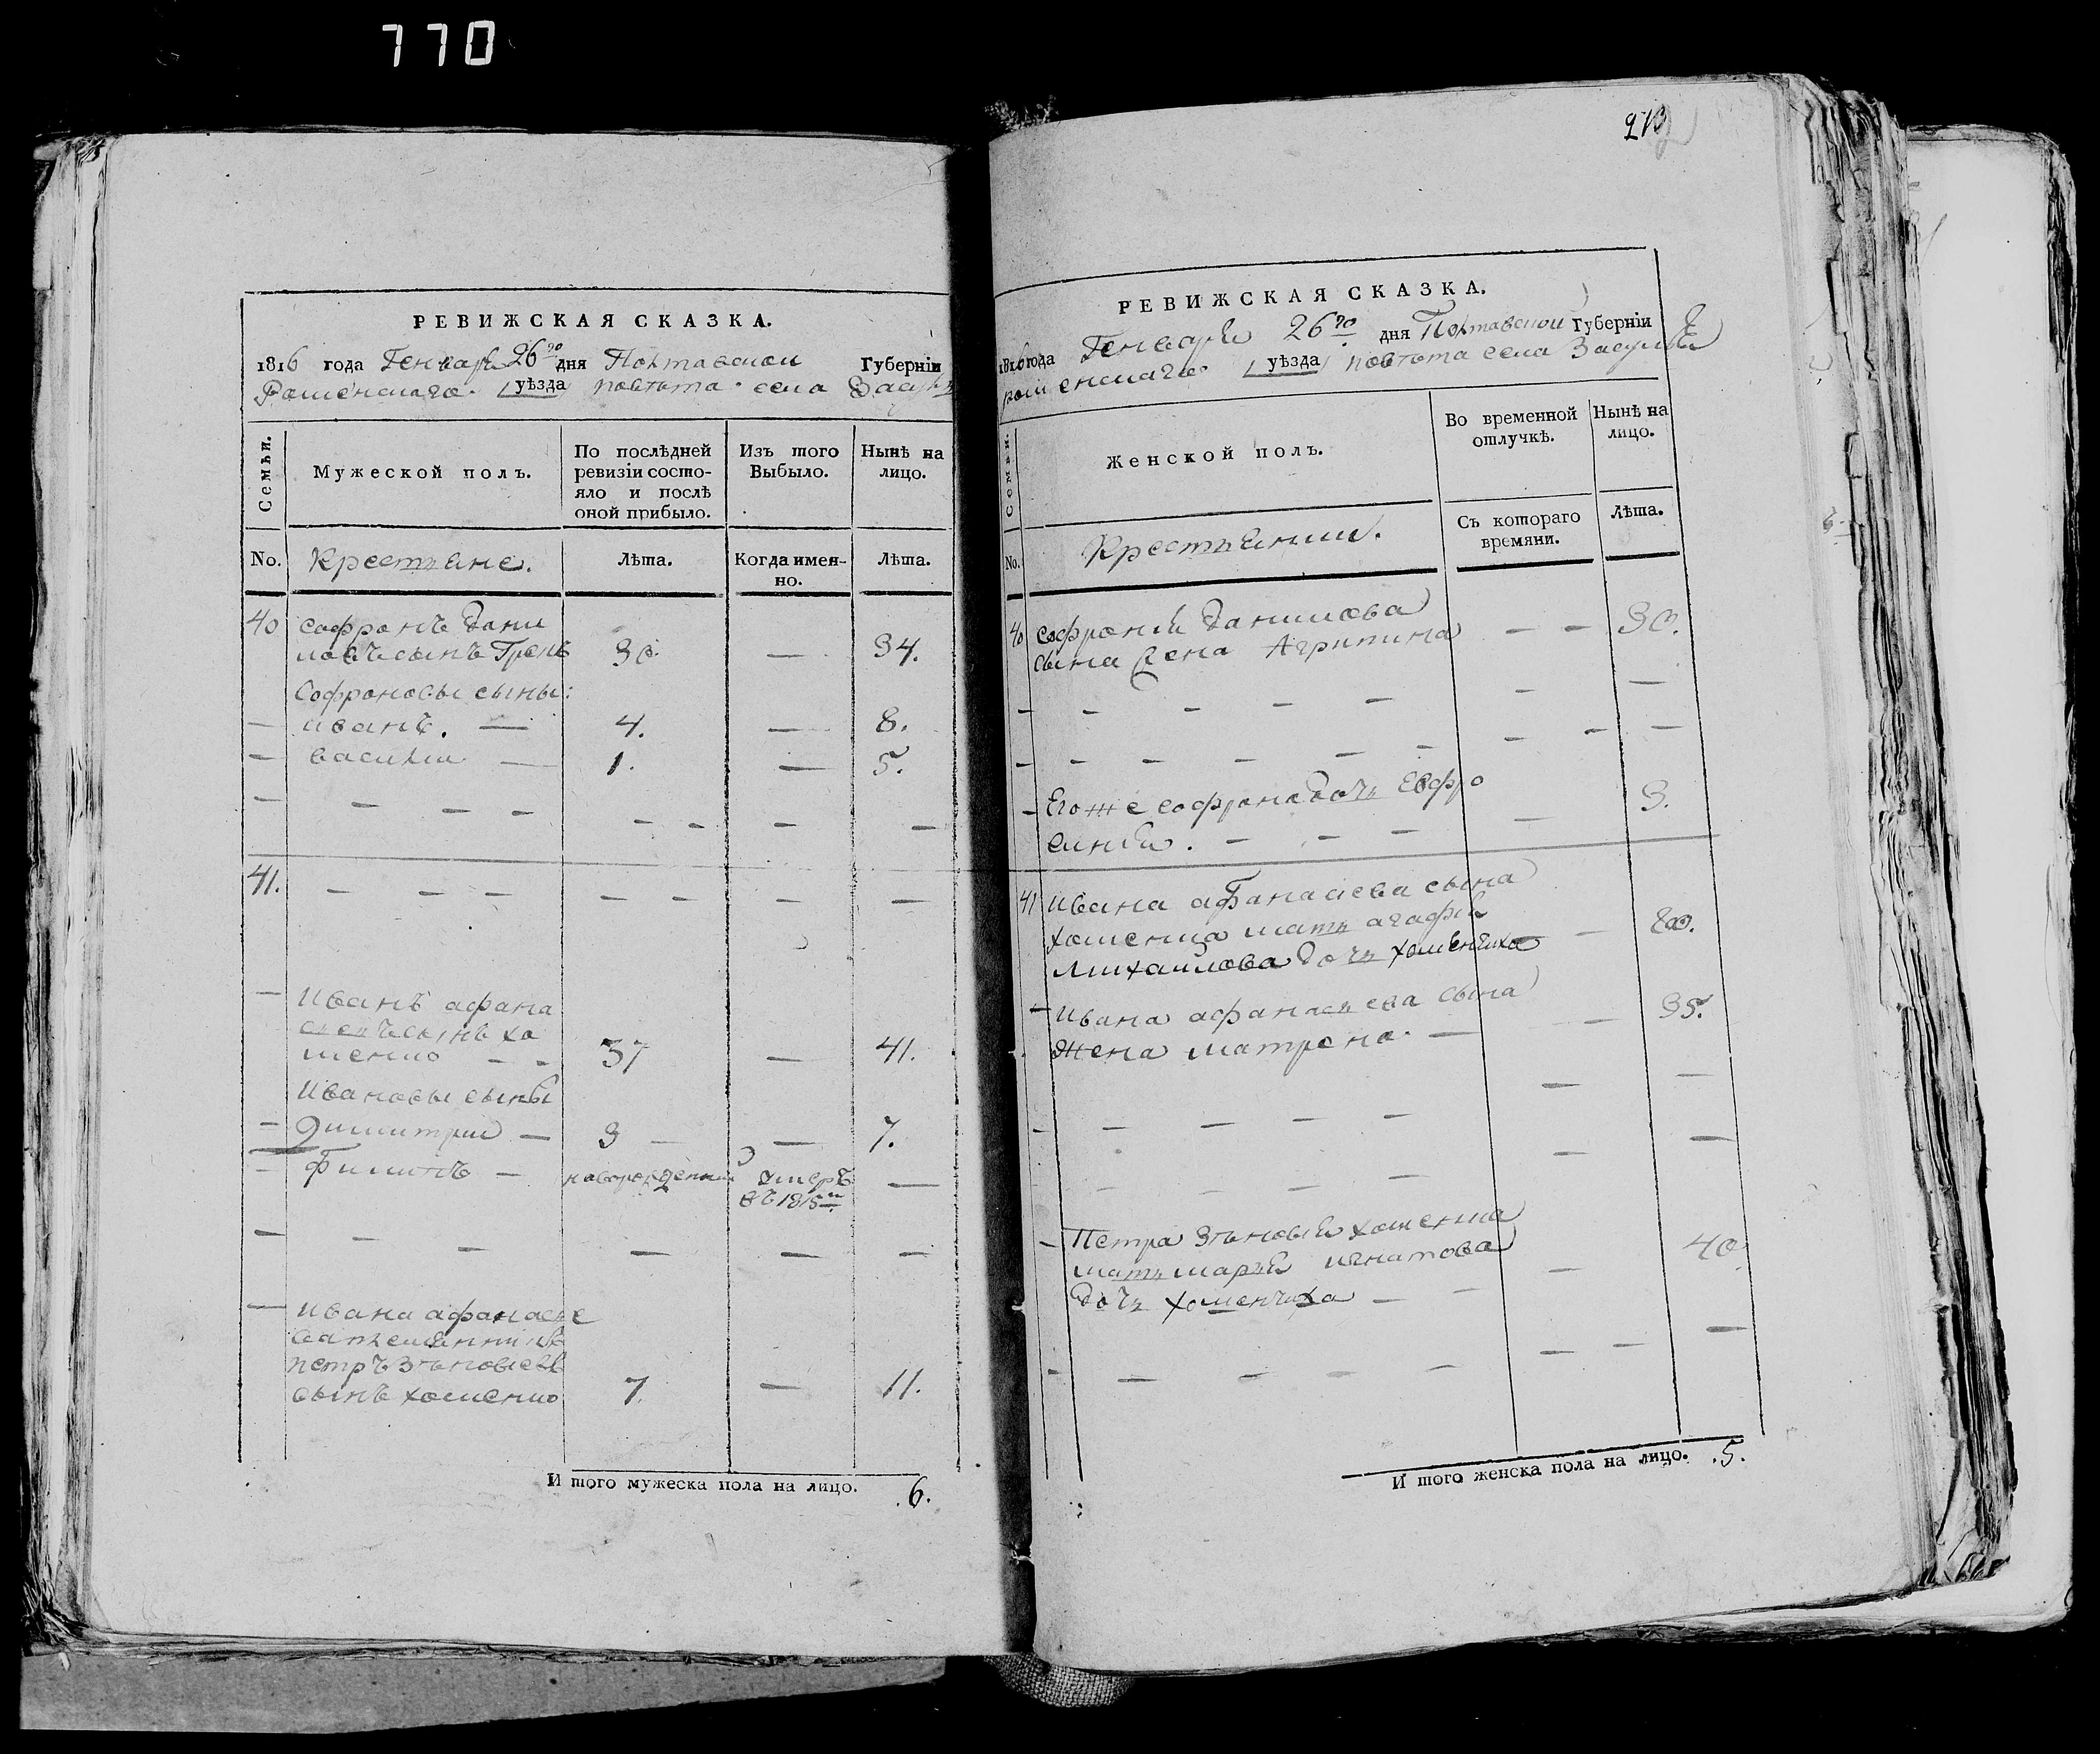 770
РЕВИЖСКАЯ СКАЗКА.
1816 года Генваря 26го дня Полтавской Губерніи
Роменскаго уѣзда повѣта села Засулья
Семьи.
Мужеской полъ.
По послѣдней ревизіи состояло и послѣ оной прибыло.
Изъ того Выбыло.
Нынѣ на лицо.
No. Крестьяне. Лѣта. Когда именно. Лѣта.
40 Софронъ Дани
ловъ сынъ 30. — 34.
Софроновы сыны:
— Иванъ. — 4. — 8.
— Василии — 1. — 5.
— — — — — — — —
41. — — — — — — —
— Иванъ Афана
сьевъ сынъ Хо
менко — — 37 — 41.
Ивановы сыны
— Димитрии — 3 — — 7.
— Филипъ — новорожденны умеръ —
въ 1815м
— — — — — —
— Ивана Афанасье
ва племянникъ
Петръ Зѣновьевъ
сынъ Хоменко 7. — 11.
И того мужеска пола на лицо. 6.
213
РЕВИЖСКАЯ СКАЗКА.
1816 года Генваря 26го дня Полтавской Губерніи
Роменскаго уѣзда повѣта села Засулья
Семьи.
Женской полъ.
Во временной отлучкѣ.
Нынѣ на лицо.
No. Крестьянки. Съ котораго времяни. Лѣта.
40 Софрона Данилова
сына жена Агрипина — — 30.
— — — — — — —
— — — — — — — — —
— Его же Софрона дочь Евфро
синия. — — — — 3.
41 Ивана Афанасиева сына
Хоменка мать Агафия
Михаилова дочь Хоменчиха — 80.
— Ивана Афанасьева сына
жена Матрона. — — 35.
— — — — — — —
— — — — — —
— Петра Зѣновия Хоменка
мать Марья Игнатова
дочь Хоменчиха — — — 40
— — — — — — — —
И того женска пола на лицо. 5.